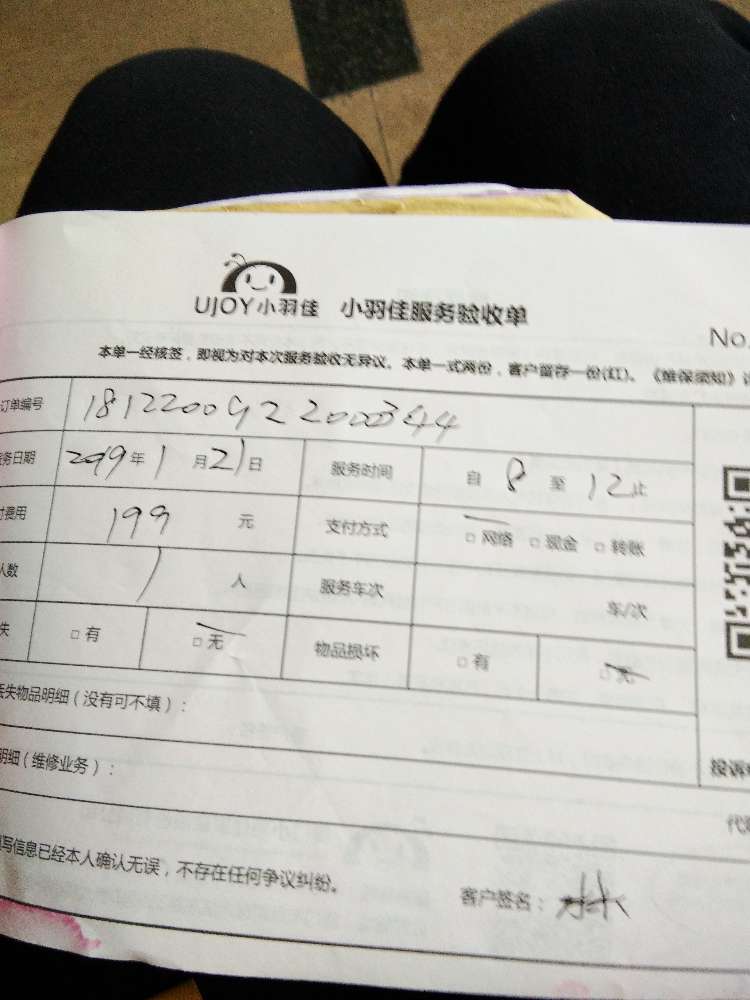 UJOY小羽佳 小羽佳服务验收单
No.
本单一经核签，即视为对本次服务验收无异议。本单一式两份，客户留存一份(红)。《维保须知》
订单编号 18122009222000344
务日期 2019年1月21日 服务时间 自8至12止
付费用 199 元 支付方式 □网络 □现金 □转账
人数 1 人 服务车次 车/次
失 □有 □无 物品损坏 □有 □无
丢失物品明细（没有可不填）：
明细（维修业务）： 投诉
代
填写信息已经本人确认无误，不存在任何争议纠纷。 客户签名：